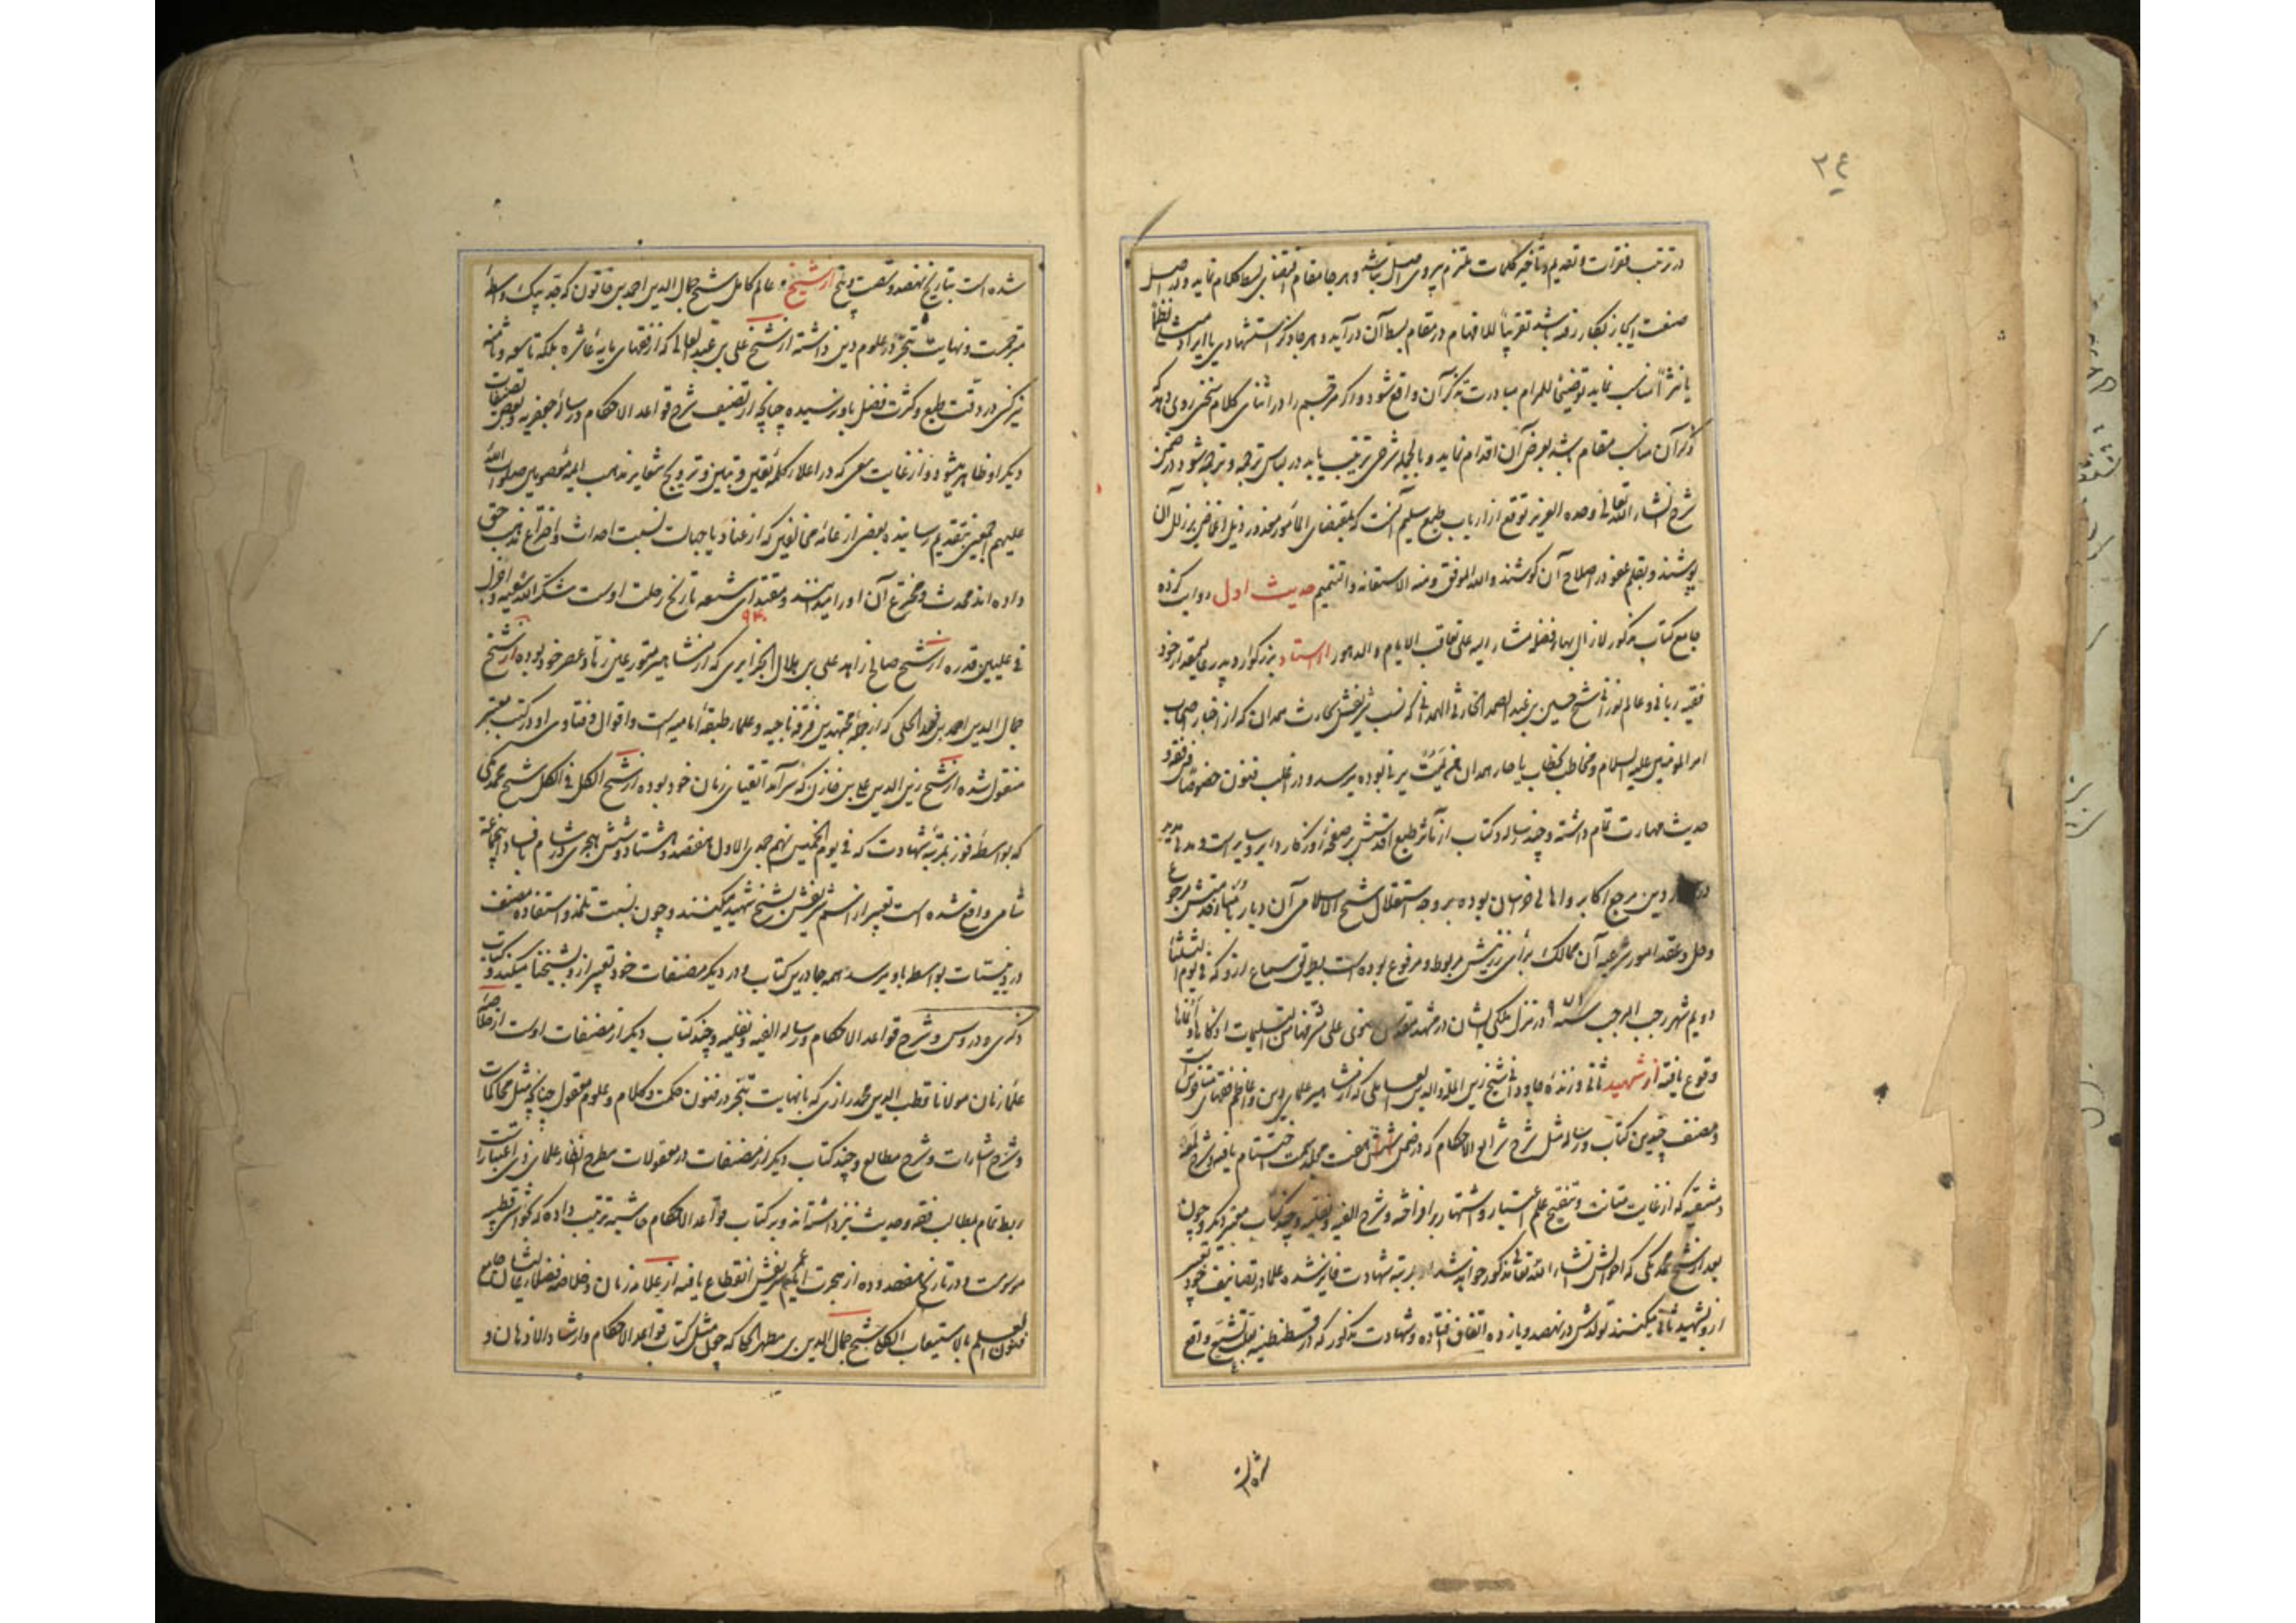 ۲۴
در ترتیب فقرات و تقدیم و تأخیر کلمات ملتزم پیروی اصل نباشد و هر جا مقام اقتضای بسط کلام نماید و در اصل
صنعت ایجاز بکار رفته باشد تقریباً للافهام در مقام بسط آن درآید و هر جا ذکر استشهادی یا ایراد مثلی نظماً
یا نثراً مناسب نماید توضیحاً للمرام مبادرت بذکر آن واقع شود و در اثنای کلام سخنی روی دهد که
ذکر آن مناسب مقام باشد بعرض آن اقدام نماید و بالجمله شرحی ترتیب یابد در لباس ترجمه و ترجمه شود در ضمن
شرح انشاء الله تعالی وحده العزیز توقع از ارباب طبع سلیم آنست که بمقتضای المأمور معذور ذیل اغماض بر زلل آن
پوشند و بقلم عفو در اصلاح آن کوشند والله الموفق ومنه الاستعانه والتتمیم حدیث اول روایت کرده
جامع کتاب مذکور لازال بهاء فضله مشار الیه علی تعاقب الایام والدهور از استاد بزرگوار و پدر عالیمقدار خود
فقیه ربانی و عالم نورانی شیخ حسین بن عبد الصمد الحارثی الهمدانی که نسب شریفش بحارث همدان که از اخیار اصحاب
امیر المومنین علیه السلام و مخاطب بخطاب یا حار همدان من یمت یرنی بوده میرسد و در اغلب فنون خصوصا فن فقه و
حدیث مهارت تمام داشته و چند رساله و کتاب از مآثر طبع اقدسش بر صفحه روزگار دایر و سایر است و مدتهای مدید
در دین مرجع اکابر و اهالی خراسان بوده بر وجه استقلال شیخ الاسلامی آن دیار
و حل و عقد امور شرعیه آن ممالک برأی رزینش مربوط و مرفوع بوده است بطریق سماع از او که فی یوم الثلثا
دویم شهر رجب المرجب سنه ۹۷۱ در منزل ملکی ایشان در مشهد مقدس رضوی علی مشرفها من التسلیمات
وقوع یافته از شهید ثانی و زنده جاودانی شیخ زین الملة والدین العاملی که از مشاهیر علمای دین و اعاظم فقهای
و مصنف چندین کتاب و رساله مثل شرح شرایع الاحکام که در ضمن هفت مجلد سمت اختتام یافته و شرح لمعه
دمشقیه که از غایت متانت و تنقیح علم اعتبار و اشتهار برافراخته و شرح الفیه و نفلیه و چند کتاب معتبر دیگر و چون
بعد از شیخ محمد مکی که احوالش انشاء الله تعالی مذکور خواهد شد او بمرتبه شهادت فایز شده علما در تصانیف خود تعبیر
از او بشهید ثانی میکنند تولدش در نهصد و یازده اتفاق افتاده و شهادت مذکور که در قسطنطنیه واقع
شده است
شده است بتاریخ نهصد و شصت و پنج از شیخ و عالم کامل شیخ جمال الدین احمد بن خاتون که
و نهایت تبحر در علوم دین داشته از شیخ علی بن عبد العالی که از فقهای مایه عاشره بلکه تاسعه و ثامنه
نیز کسی در دقت طبع و کثرت فضل باو نرسیده چنانچه از تصنیف شرح قواعد الاحکام و رساله جعفریه و بعض تصنیفات
دیگر او ظاهر میشود و از غایت سعی که در اعلاء کلمه یقین و تبیین و ترویج شعایر مذهب ایمه معصومین صلوات الله
علیهم اجمعین بتقدیم رسانیده بعضی از عامه مخالفین که از عناد یا جهالت نسبت احداث و اختراع مذهب حق
داده اند محدث و مخترع آن او را میدانند و مقتدای شیعه تاریخ رحلت اوست شکر الله سعیه و
۹۴۰
فی علیین قدره از شیخ صالح زاهد علی بن هلال الجزایری که از مشاهیر متورعین زهاد عصر خود بوده از شیخ
جمال الدین احمد بن فهد الحلی که از جمله مجتهدین فرقه ناجیه و علماء طبقه امامیه است و اقوال و فتاوی او در کتب معتبر
منقول شده از شیخ زین الدین علی بن خازن که سرآمد اتقیای زمان خود بوده از شیخ الکل فی الکل شیخ محمد مکی
که بواسطه فوز بمرتبه شهادت که فی یوم الخمیس نهم جمدی الاول هفتصد و هشتاد و شش هجری در شام
شامی واقع شده است تعبیر از اسم شریفش بشیخ شهید میکنند و چون نسبت تلمذ و استفاده مصنف
بواسطه باو میرسد همه جا درین کتاب و در دیگر مصنفات خود تعبیر از او بشیخنا میکند و کتاب
ذکری و دروس و شرح قواعد الاحکام و رساله الفیه و نفلیه و چند کتاب دیگر از مصنفات اوست از
علماء زمان مولانا قطب الدین محمد رازی که با نهایت تبحر در فنون حکمت و کلام و علوم معقول چنانکه مثل محاکمات
و شرح اشارات و شرح مطالع و چند کتاب دیگر از مصنفات در معقولات مطرح انظار علمای ذی اعتبار است
ربط تمام بمطالب فقه و حدیث نیز داشته اند و بر کتاب قواعد الاحکام حاشیه ترتیب داده که بحواشی قطبیه
موسومست و در تاریخ هفتصد و ده از هجرت ایام عمر شریفش انقطاع یافته از علامه زمان و خلاصه فضلای عالیشان جامع
فنون العلم بالاستیعاب الکلی شیخ جمال الدین بن مطهر الحلی که چون مثل کتاب قواعد الاحکام و ارشاد الاذهان و